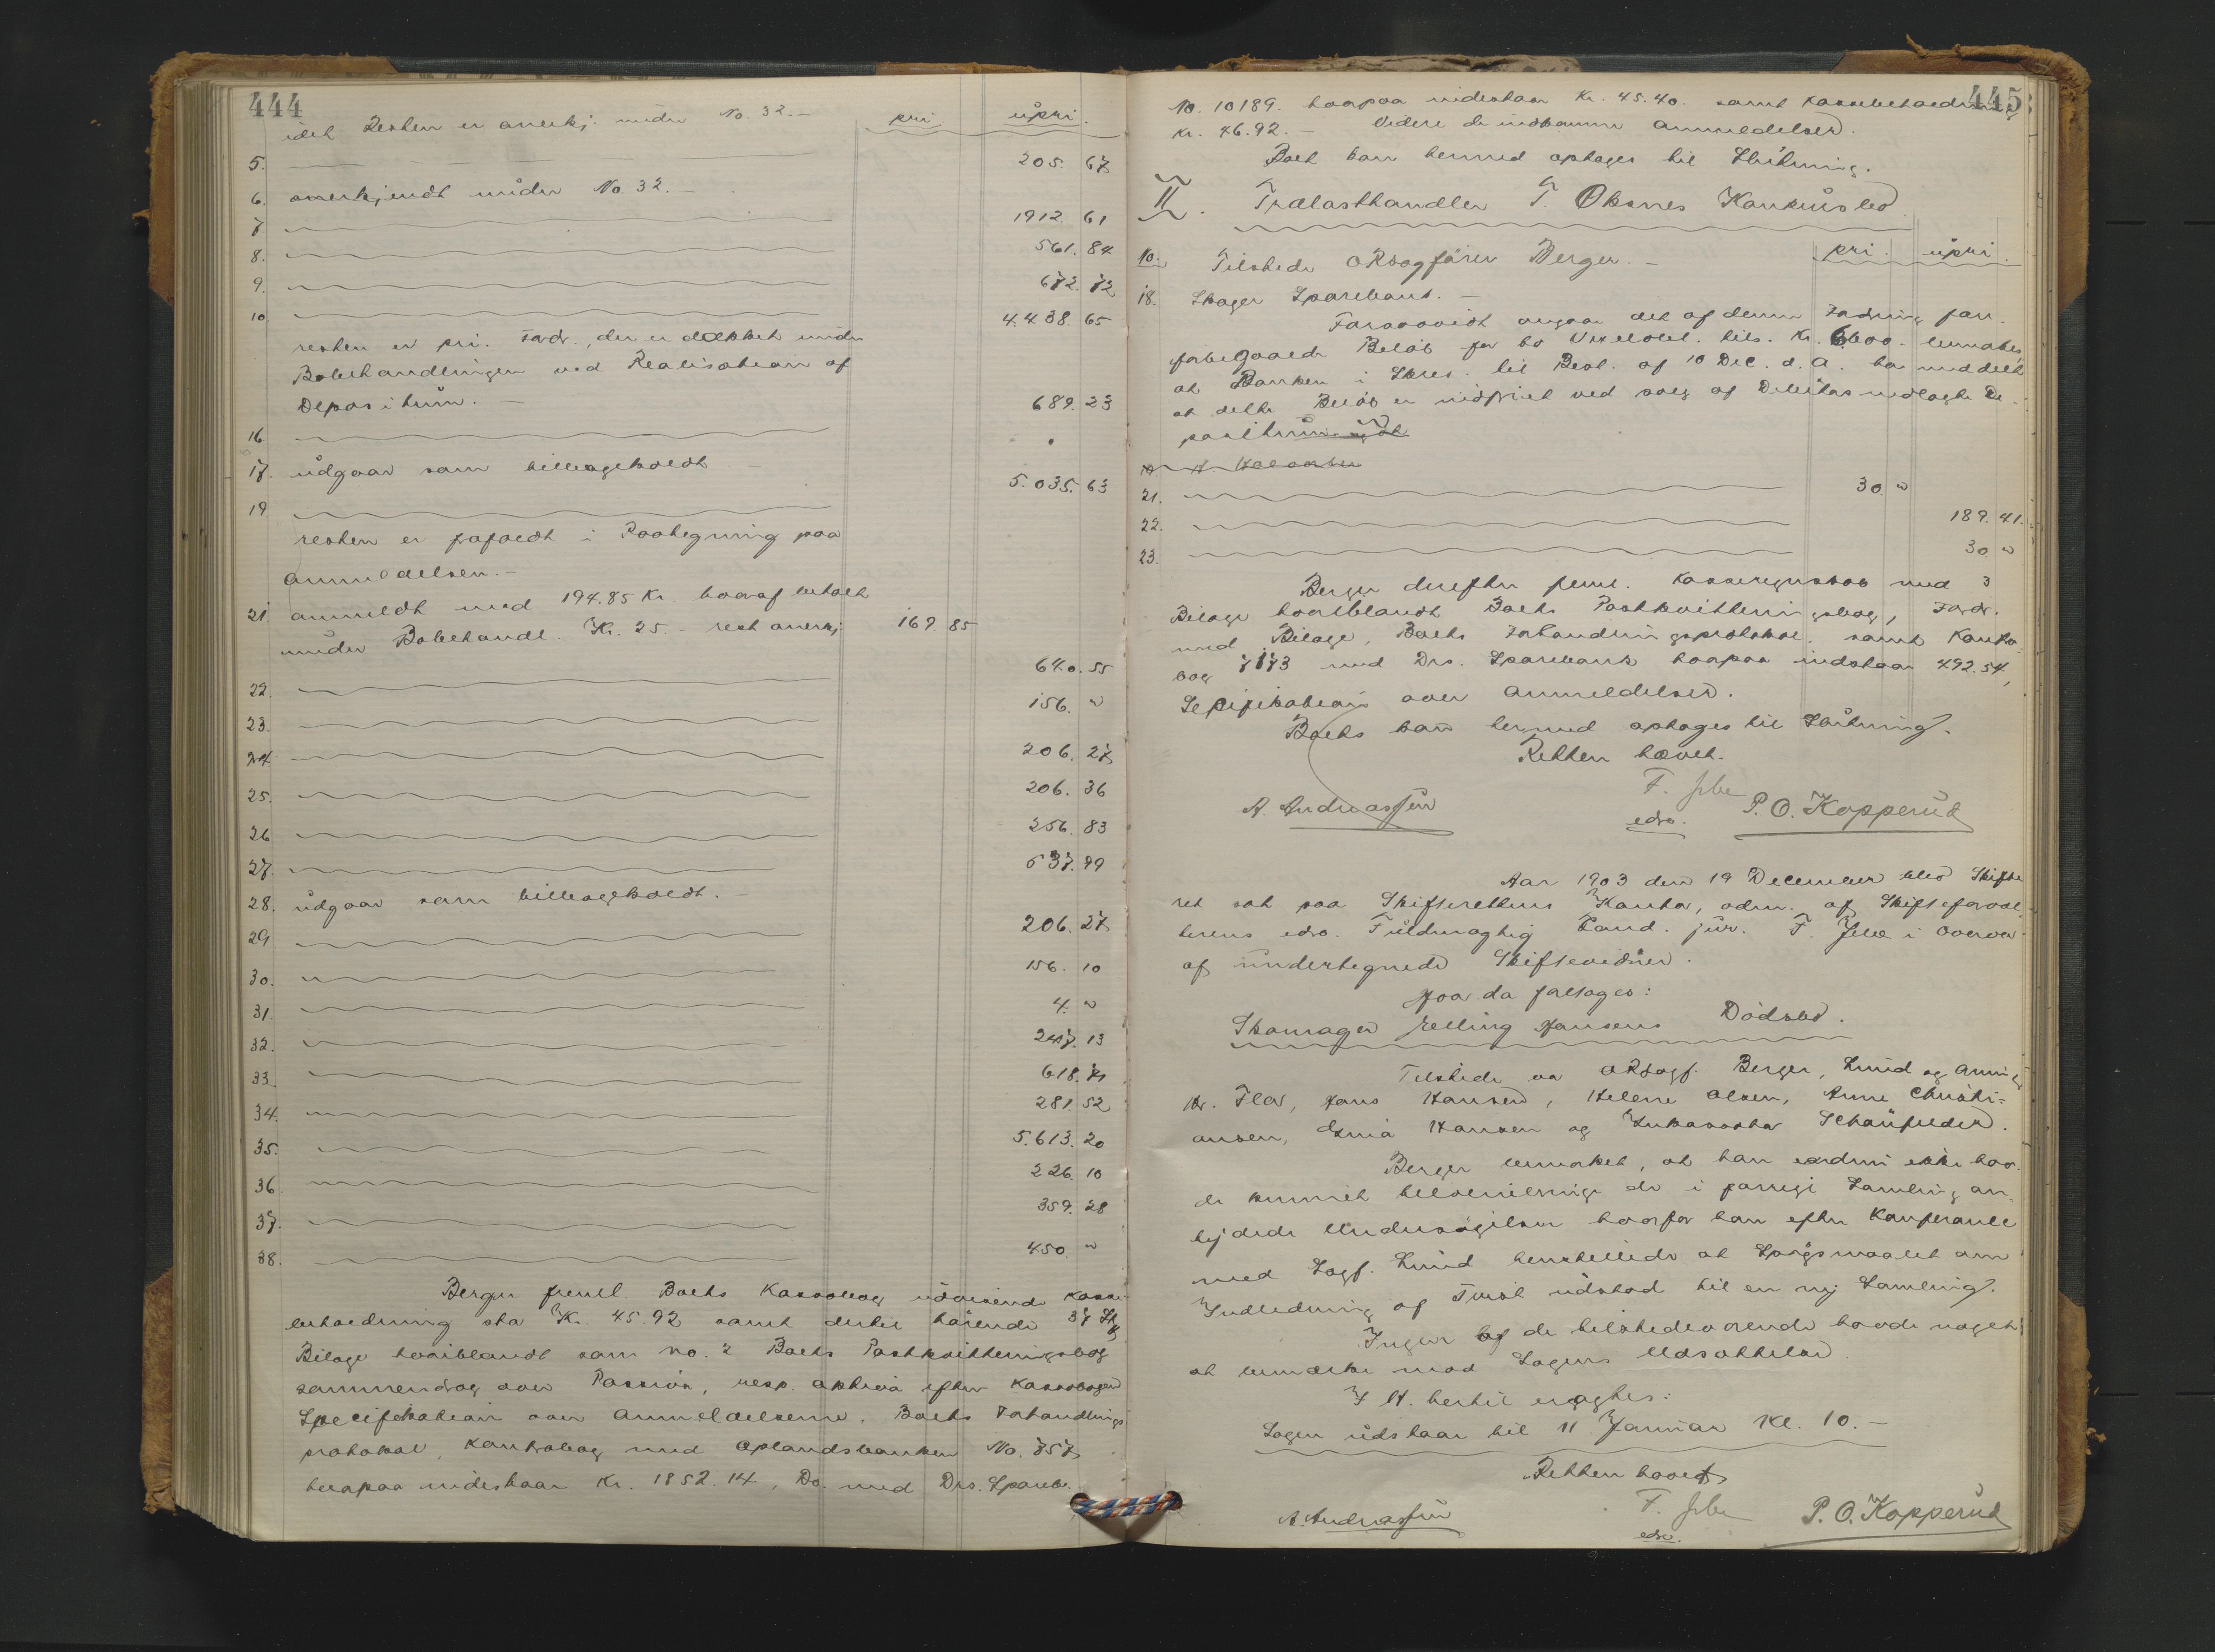 444
idet Resten er anerkj. under No. 32.— pri. upri.
5. 205. 67
6. anerkjendt under No 32.—
7. 1912. 61
8. 561. 84
9. 672. 72
10. 4.438. 65
resten er pri. Fordr., der er dækket under
Bobehandlingen ved Realisation af
Depositum.— 689. 23
16.
17. udgaar som tilbageholdt
19 5.035. 63
resten er frafaldt i Paategning paa
Anmeldelsen.—
21. anmeldt med 194.85 Kr. hvoraf betalt
under Bobehandl. Kr. 25.— rest anerkj 169. 85
22. 640. 55
23. 156. "
24. 206. 27
25. 206. 36
26. 256. 83
27. 637. 99
28. udgaar som tilbageholdt.—
29. 206. 27
30. 156. 10
31. 4. "
32. 247. 13
33. 618. 71
34. 281. 52
35. 5.613. 20
36. 226. 10
37. 359. 28
38. 450. "
Berger freml. Boets Kassabog udvisende Kasse-
beholdning sta Kr. 45.92 samt dertil hörende 37 Stk
Bilage hvoriblandt som no. 2 Boets Postkvitteringsbog
sammendrag over Passiva, resp. aktiva efter Kassabogen
Specifikation over Anmeldelserne, Boets Forhandlings
protokol, Kontrabog med Oplandsbanken No. 757
hvorpaa indestaar Kr. 1852.14, Do. med Drs. Spareb.
445
No. 10189. hvorpaa indestaar Kr. 45.40. samt Kassebeholdning
Kr. 46.92.— Videre de indkomne Anmeldelser.
Boet kan hermed optages til Slutning.
II. Trælasthandler T. Oksnes Konkursbo
10. Tilstede ORsagförer Berger.— pri. upri.
18. Skager Sparebank.—
Forsaavidt angaar det af denne Fordring for-
forbigaaede Belöb for bo Vexelobl. tils. Kr. 6600.— bemærkes,
at Banken i Skriv. til Best. af 10 Dec. d. A. har meddelt
at dette Belöb er indfriet ved salg af Debitors nedlagte De-
positum
21. 30 "
22. 189. 41.
23. 30 "
Berger derefter freml. Kasseregnskab med 3
Bilage hvoriblandt Boets Postkvitteringsbog, Fordr.
med Bilage, Boets Forhandlingsprotokol samt Kontra
bog 7173 med Drs. Sparebank hvorpaa indstaar 492.54,
Specifikation over Anmeldelser.
Boets kan hermed optages til Slutning.
Retten hævet.
A. Andreassen F. Jebe P. O. Kopperud
edsv.
Aar 1903 den 19 December blev Skifte
ret sat paa Skifterettens Kontor, adm. af Skifteforval
terens edsv. Fuldmægtig Cand. jur. F. Jebe i Overvær
af undertegnede Skiftevidner.
Hvor da foretoges:
Skomager Jelling Hansens Dödsbo.
Tilstede var ORsagf. Berger, Lund og Arming
Kr. Flor, Hans Hansen, Helene Olsen, Anne Christi-
ansen, Hansen og
Berger bemærket, at han endnu ikke hav-
de kunnet tilveiebringe de i forrige Samling an-
tydede Undersögelser hvorfor han efter Konferance
med Sagf. Lund henstillede at Spörgsmaalet om
Indledning af Tvist udstod til en ny Samling.
Ingen af de tilstedeværende havde noget
at bemærke mod Sagens Udsættelse.
I H. hertil eragtes:
Sagen udstaar til 11 Januar Kl. 10.—
Retten hævet
A. Andreassen F. Jebe P. O. Kopperud
edsv.